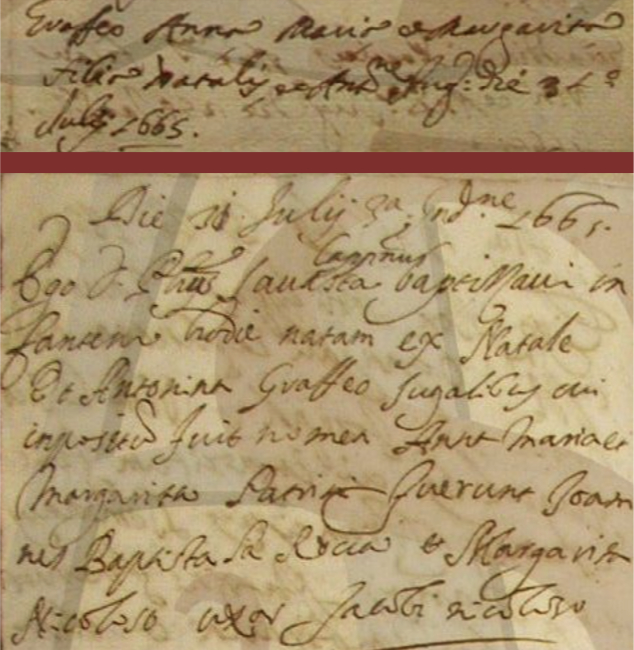 Graffeo Anna Maria e Margarita
filia Natalis et Ant.ne Jug: die 31 
July 1665.
Die 31 July 3a Ind.ne 1665.
Ego D. Cappnus baptissavi in
fantem hodie natam ex Natale
Et Antonina Graffeo Jugalibus cui
impositū fuit nomen Anna Maria et
Margarita Patrini fuerunt Joan
nes Baptista la Rocca et Margarita
Nicoloso uxor Jacobi Nicoloso